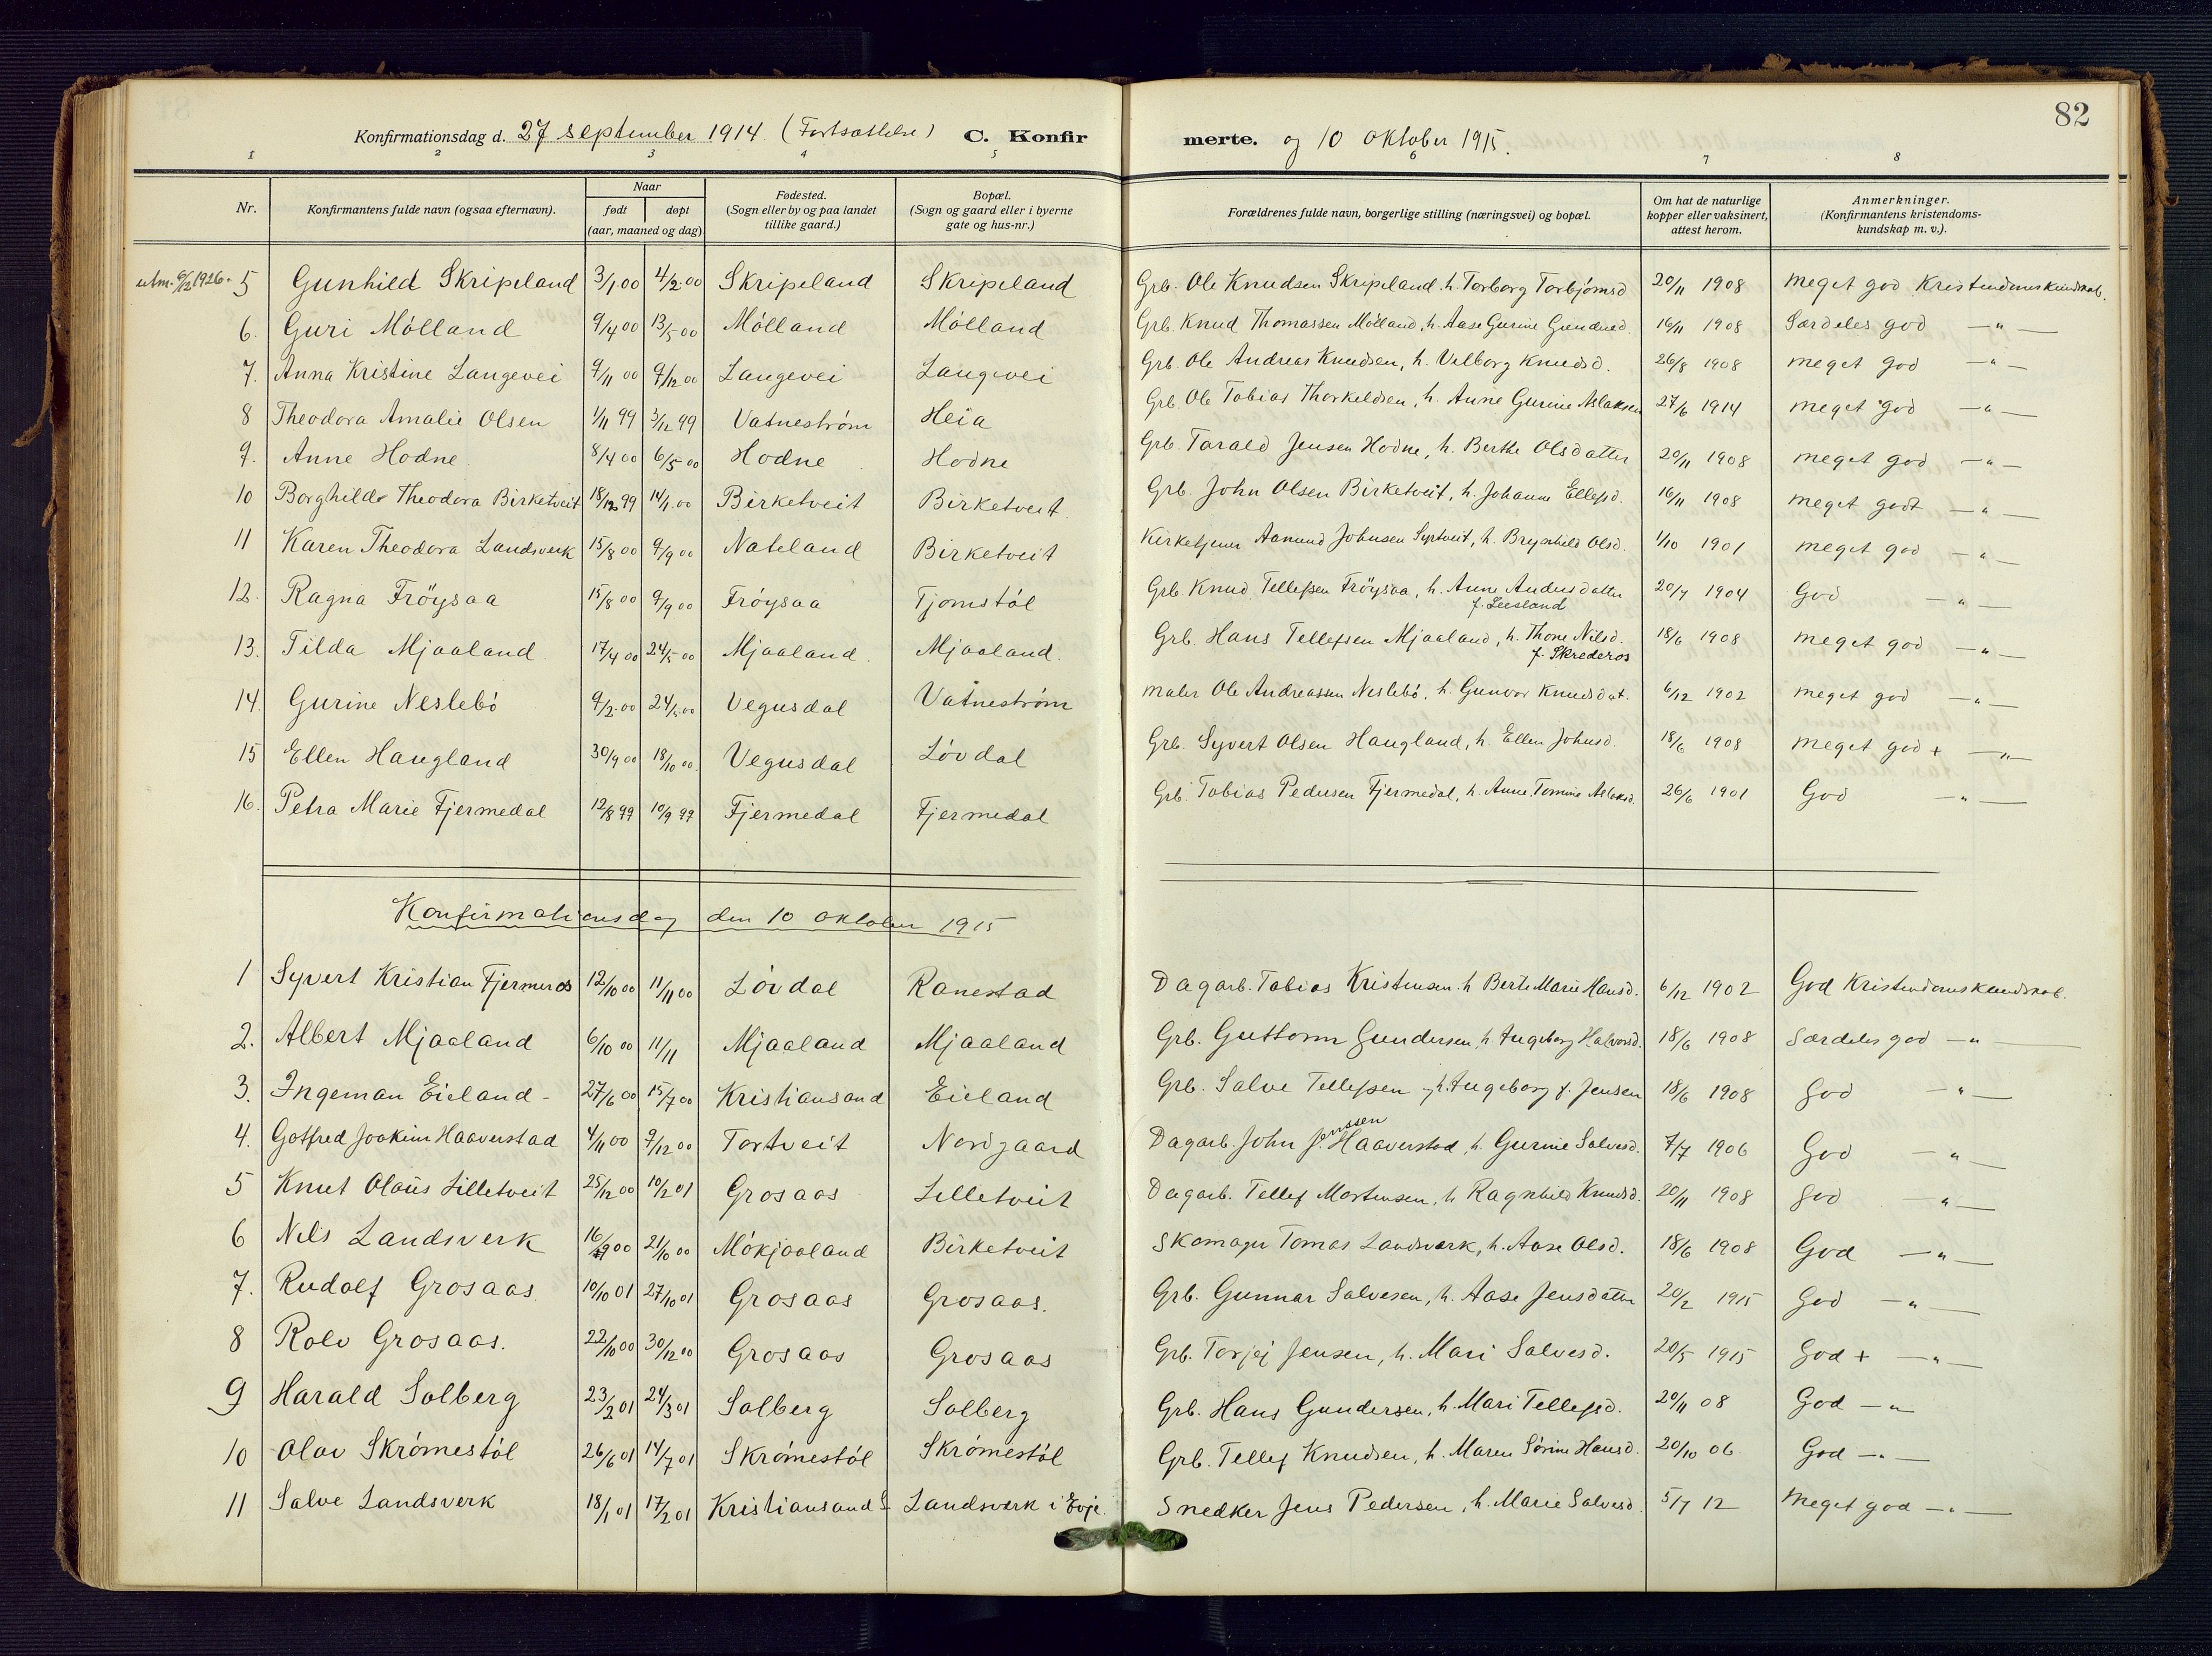 82
Konfirmationsdag d. 27 september 1914. (Fortsættelse) C. Konfirmerte. og 10 oktober 1915.
1 2 3 4 5 6 7 8
Nr. Konfirmantens fulde navn (ogsaa efternavn). Naar født døpt (aar, maaned og dag) Fødested. (Sogn eller by og paa landet tillike gaard.) Bopæl. (Sogn og gaard eller i byerne gate og hus-nr.) Forældrenes fulde navn, borgerlige stilling (næringsvei) og bopæl. Om hat de naturlige kopper eller vaksinert, attest herom. Anmerkninger. (Konfirmantens kristendoms-kundskap m. v.).
utm. 6/12 1926. 5 Gunhild Skripeland 3/1.00 4/2.00 Skripeland Skripeland Grb. Ole Knudsen Skripeland h. Torborg Torbjørnsd 20/11 1908 Meget god Kristendomskundskab.
6. Guri Mölland 9/4 00 13/5 00 Mölland Mölland Grb. Knud Thomassen Mölland, h. Aase Gurine 16/11 1908 Særdeles god — " —
7. Anna Kristine Langevei 9/11 00 9/12 00 Langevei Langevei Grb. Ole Andreas Knudsen, h. Velborg Knudsd. 26/8 1908 meget god — " —
8 Theodora Amalie Olsen 1/11 99 3/12 99 Vatneström Heia Grb. Ole Tobias Thorkeldsen, h. Anne Gurine Aslaksen 27/6 1914 meget god — " —
9. Anne Hodne 8/4 00 6/5 00 Hodne Hodne Grb. Tarald Jensen Hodne, h. Berthe Olsdatter 20/11 1908 meget god — " —
10 Borghild Theodora Birketveit 18/12 99 14/1.00 Birketveit Birketveit Grb. John Olsen Birketveit, h. Johanne Ellefsd. 16/11 1908 meget godt — " —
11 Karen Theodora Landsverk 15/8 00 9/9 00 Nateland Birketveit Kirketjener Aanund Johnsen Syrtveit, h. Brynhild Olsd. 1/10 1901 meget god — " —
12. Ragna Fröysaa 15/8 00 9/9 00 Fröysaa Tjomstöl Grb. Knud Tellefsen Fröysaa, h. Anne Andersdatter f. Leesland 20/7 1904 God — " —
13. Tilda Mjaaland 17/4 00 24/5 00 Mjaaland. Mjaaland. Grb. Hans Tellefsen Mjaaland, h. Thone Nilsd. f. Skrederos 18/6 1908 meget god — " —
14. Gurine Neslebö 9/2.00 24/5.00 Vegusdal Vatneström maler Ole Andreassen Neslebö, h. Gunvor Knudsdat. 6/12 1902 meget god — " —
15 Ellen Haugland 30/9 00 18/10 00. Vegusdal Lövdal Grb. Syvert Olsen Haugland, h. Ellen Johnsd. 18/6 1908 meget god + — " —
16. Petra Marie Fjermedal 12/8 99 10/9 99 Fjermedal Fjermedal Grb. Tobias Pedersen Fjermedal, h. Anne Tomine Aslaksd. 26/6 1901 God — " —
Konfirmationsdag den 10 oktober 1915
1 Syvert Kristian Fjermeros 12/10 00 11/11 00 Lövdal Ranestad Dagarb. Tobias Kristensen h Berte Marie Hansd. 6/12 1902 God Kristendomskundskab.
2. Albert Mjaaland 6/10 00 11/11 Mjaaland Mjaaland Grb. Guttorm Gundersen, h Ingeborg Halvorsd. 18/6 1908 Særdeles god — " —
3. Ingeman Eieland - 27/6 00 15/7 00 Kristiansand Eieland Grb. Salve Tellefsen h. Ingeborg f. Jensen 18/6 1908 God — " —
4. Gotfred Joakim Haaverstad 4/11 00 9/12 00 Tortveit Nordgaard Dagarb. John Jenssen Haaverstad, h. Gurine Salvesd. 7/7 1906 God — " —
5 Knut Olaus Lilletveit 25/12 00 10/2 01 Grosaas Lilletveit Dagarb. Tellef Mortensen, h Ragnhild Knudsd. 20/11 1908 god — " —
6 Nils Landsverk 16/9 00 21/10 00 Mökjaaland Birketveit Skomager Tomas Landsverk, h. Aase Olsd. 18/6 1908 God — " —
7. Rudolf Grosaas 10/10 01 27/10 01 Grosaas Grosaas. Grb. Gunnar Salvesen, h. Aase Jensdatter 20/2 1915 God — " —
8 Rolv Grosaas. 22/10 00 30/12 00 Grosaas Grosaas Grb. Torjej Jensen, h. Mari Salvesd. 20/5 1915 God + — " —
9 Harald Solberg 23/2 01 24/3 01 Solberg Solberg Grb. Hans Gundersen, h. Mari Tellefsd. 20/11 08 God — "
10 Olav Skrömestöl 26/6 01 14/7 01 Skrömestöl Skrömestöl Grb. Tellef Knudsen, h. Maren Sörine Hansd. 20/10 06 God — " —
11 Salve Landsverk 18/1 01 17/2 01 Kristiansand S Landsverk i Evje. Snedker Jens Pedersen, h. Marie Salvesd. 5/7 12 Meget god — " —